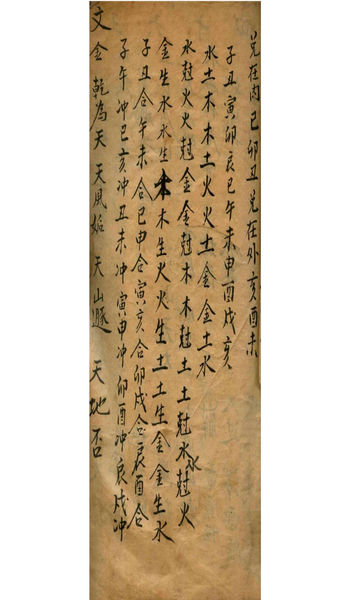 兑在内巳卯丑兑在外亥酉未
子丑寅卯辰巳午未申酉戌亥
水土木木土火火土金金土水
水尅火火尅金金尅木木尅土土尅水水尅火
金生水水生木木生火火生土土生金金生水
子丑合午未合巳申合寅亥合卯戌合辰酉合
子午冲巳亥冲丑未冲寅申冲卯酉冲辰戌冲
文金乾為天天風姤天山遯天地否